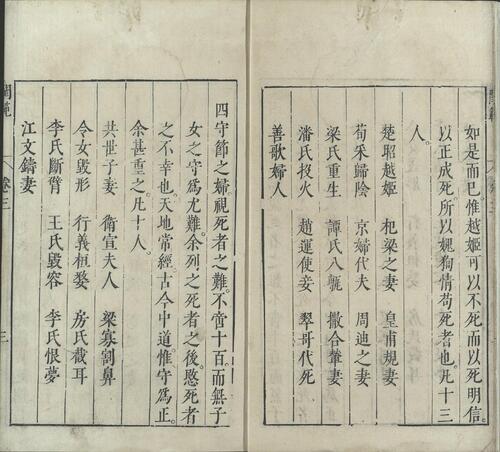 如是而已惟越姬可以不死而以死明信。
以正成死。所以媿狥情苟死者也。凡十三
人。
楚昭越姬 杞梁之妻 皇甫規妻
荀采歸陰 京婦代夫 周迪之妻
梁氏重生 譚氏八甎 撒合輦妻
潘氏投火 趙運使妾 翠哥代死
善歌婦人
四守節之婦。視死者之難。不啻十百。而無子
女之守爲尤難。余列之死者之後。愍死者
之不幸也。天地常經。古今中道。惟守爲正。
余甚重之。凡十人。
共世子妻 衛宣夫人 梁寡割鼻
令女毀形 行義桓嫠 房氏截耳
李氏斷臂 王氏毀容 李氏恨夢
江文鑄妻
閨範 卷三 三